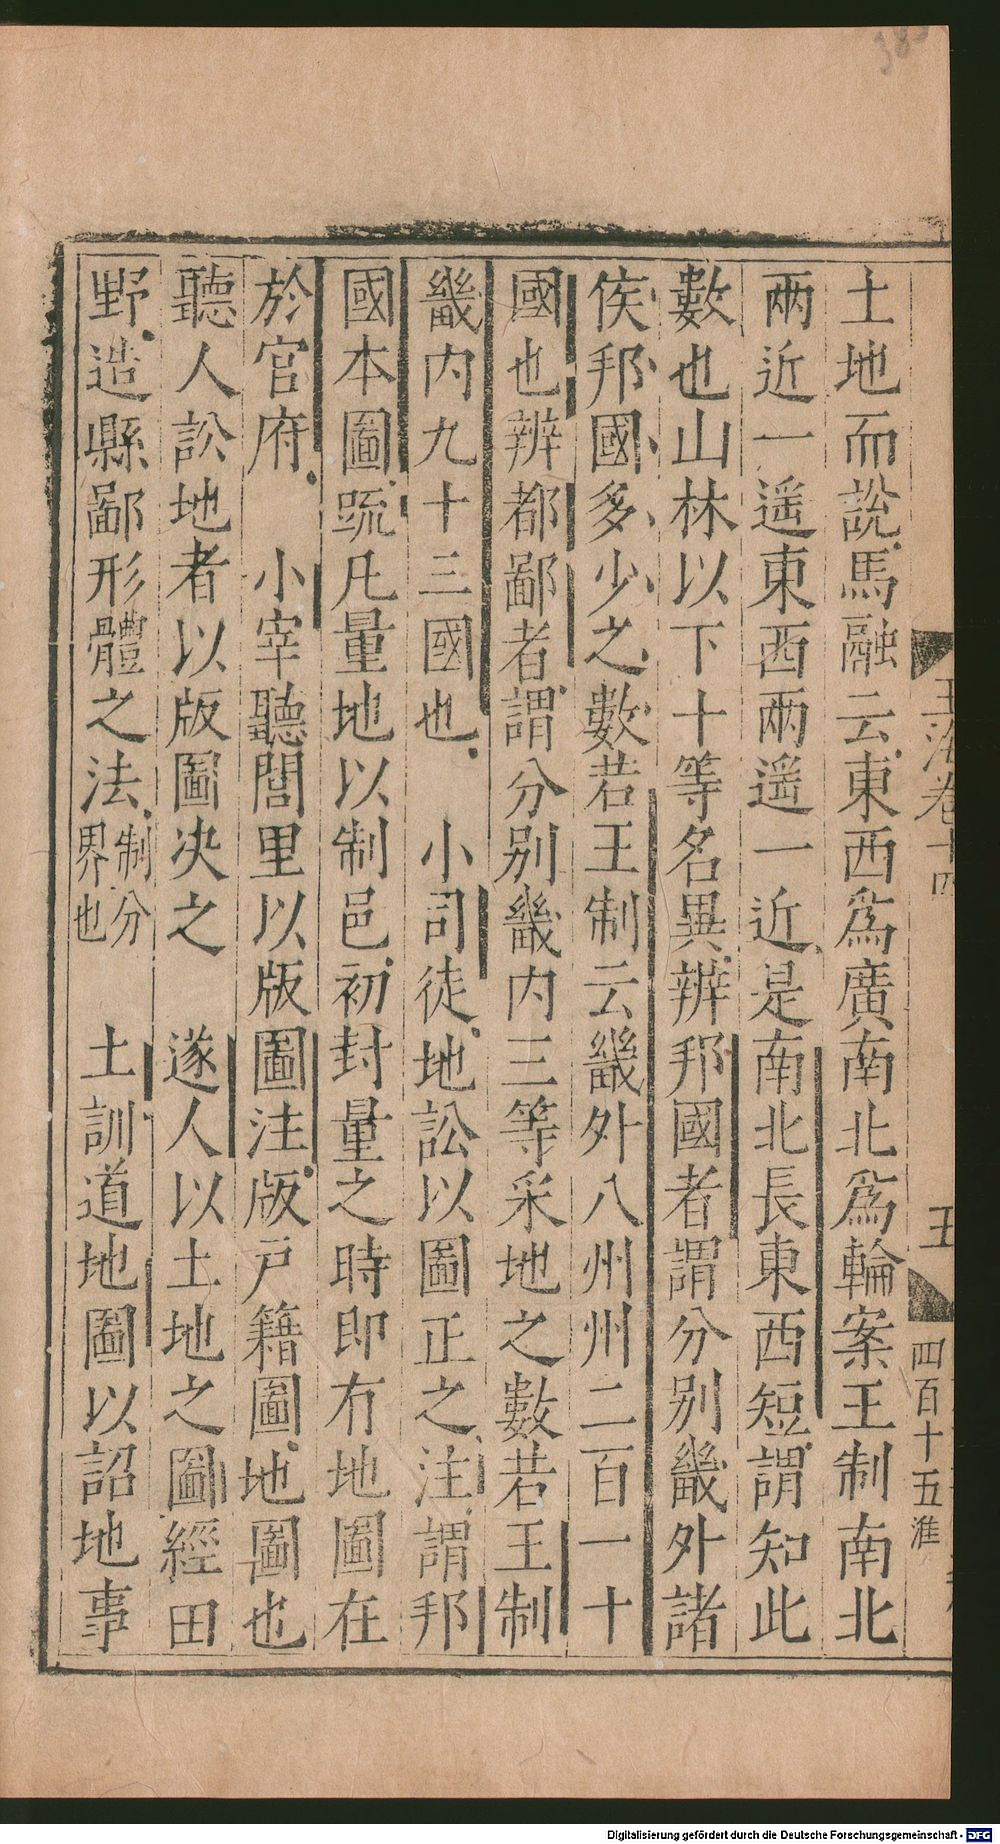 土地而說馬融云東西爲廣南北爲輪案王制南北
兩近一遥東西兩遥一近是南北長東西短謂知此
數也山林以下十等名異辨邦國者謂分别畿外諸
侯邦國多少之數若王制云畿外八州州二百一十
國也辨都鄙者謂分别畿内三等采地之數若王制
畿内九十三國也　小司徒地訟以圖正之注謂邦
國本圖䟽凡量地以制邑初封量之時即有地圖在
於官府　小宰聽閭里以版圖注版戸籍圖地圖也
聽人訟地者以版圖决之　遂人以土地之圖經田
野造縣鄙形體之法制分界也　土訓道地圖以詔地事
玉海卷十四
五
四百十五淮
Digitalisierung gefördert durch die Deutsche Forschungsgemeinschaft - DFG